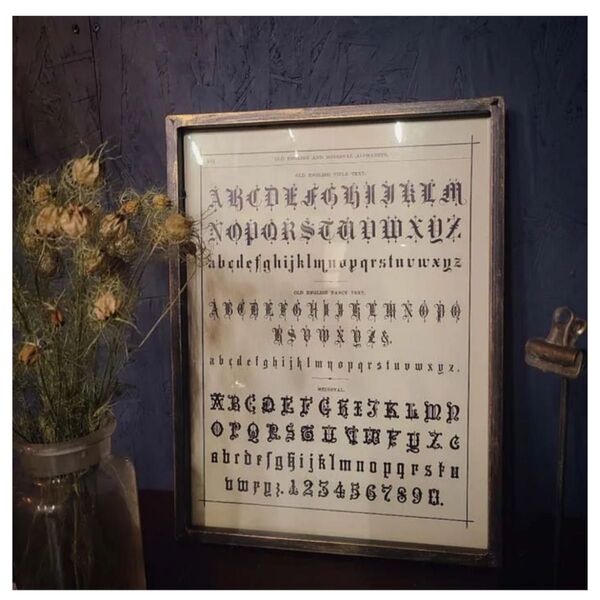 OLD ENGLISH AND MEDIEVAL ALPHABETS.
OLD ENGLISH TITLE TEXT.
A B C D E F G H I J K L M
N O P Q R S T U V W X Y Z
a b c d e f g h i j k l m n o p q r s t u v w x y z
OLD ENGLISH FANCY TEXT.
A B C D E F G H I J K L M N O P Q
R S U V W X Y Z &.
a b c d e f g h i j k l m n o p q r s t u v w x y z.
MEDIEVAL.
A B C D E F G H I J K L M N
O P Q R S T U V W X Y Z
a b c d e f g h i j k l m n o p q r s t u
v w x y z. 1 2 3 4 5 6 7 8 9 0.